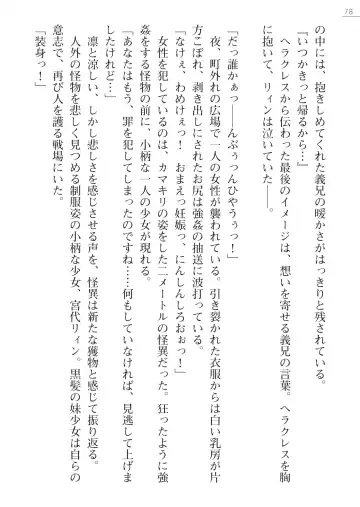 78
の中には、抱きしめてくれた義兄の暖かさがはっきりと残されている。
『いつかきっと帰るから…』
ヘラクレスから伝わった最後のイメージは、想いを寄せる義兄の言葉。ヘラクレスを胸
に抱いて、リィンは泣いていた――。
「だっ誰かぁっ――んぶぅっんひやうぅっ！」
夜、町外れの広場で一人の女性が襲われている。引き裂かれた衣服からは白い乳房が片
方こぼれ、剥き出しにされたお尻は強姦の抽送に波打っている。
「なけぇ、わめけぇっ！　おまえっ妊娠っ、にんしんしろおぉっ！」
女性を犯しているのは、カマキリの姿をした二メートルの怪異だった。狂ったように強
姦をする怪物の前に、小柄な一人の少女が現れる。
「あなたはもう、罪を犯してしまったのですね…何もしていなければ、見逃して上げま
したけれど…」
凛と涼しい、しかし悲しさを感じさせる声を、怪異は新たな獲物と感じて振り返る。
人外の怪物を悲しく見つめる制服姿の小柄な少女、宮代リィン。黒髪の妹少女は自らの
意志で、再び人を護る戦場にいた。
「装身っ！」